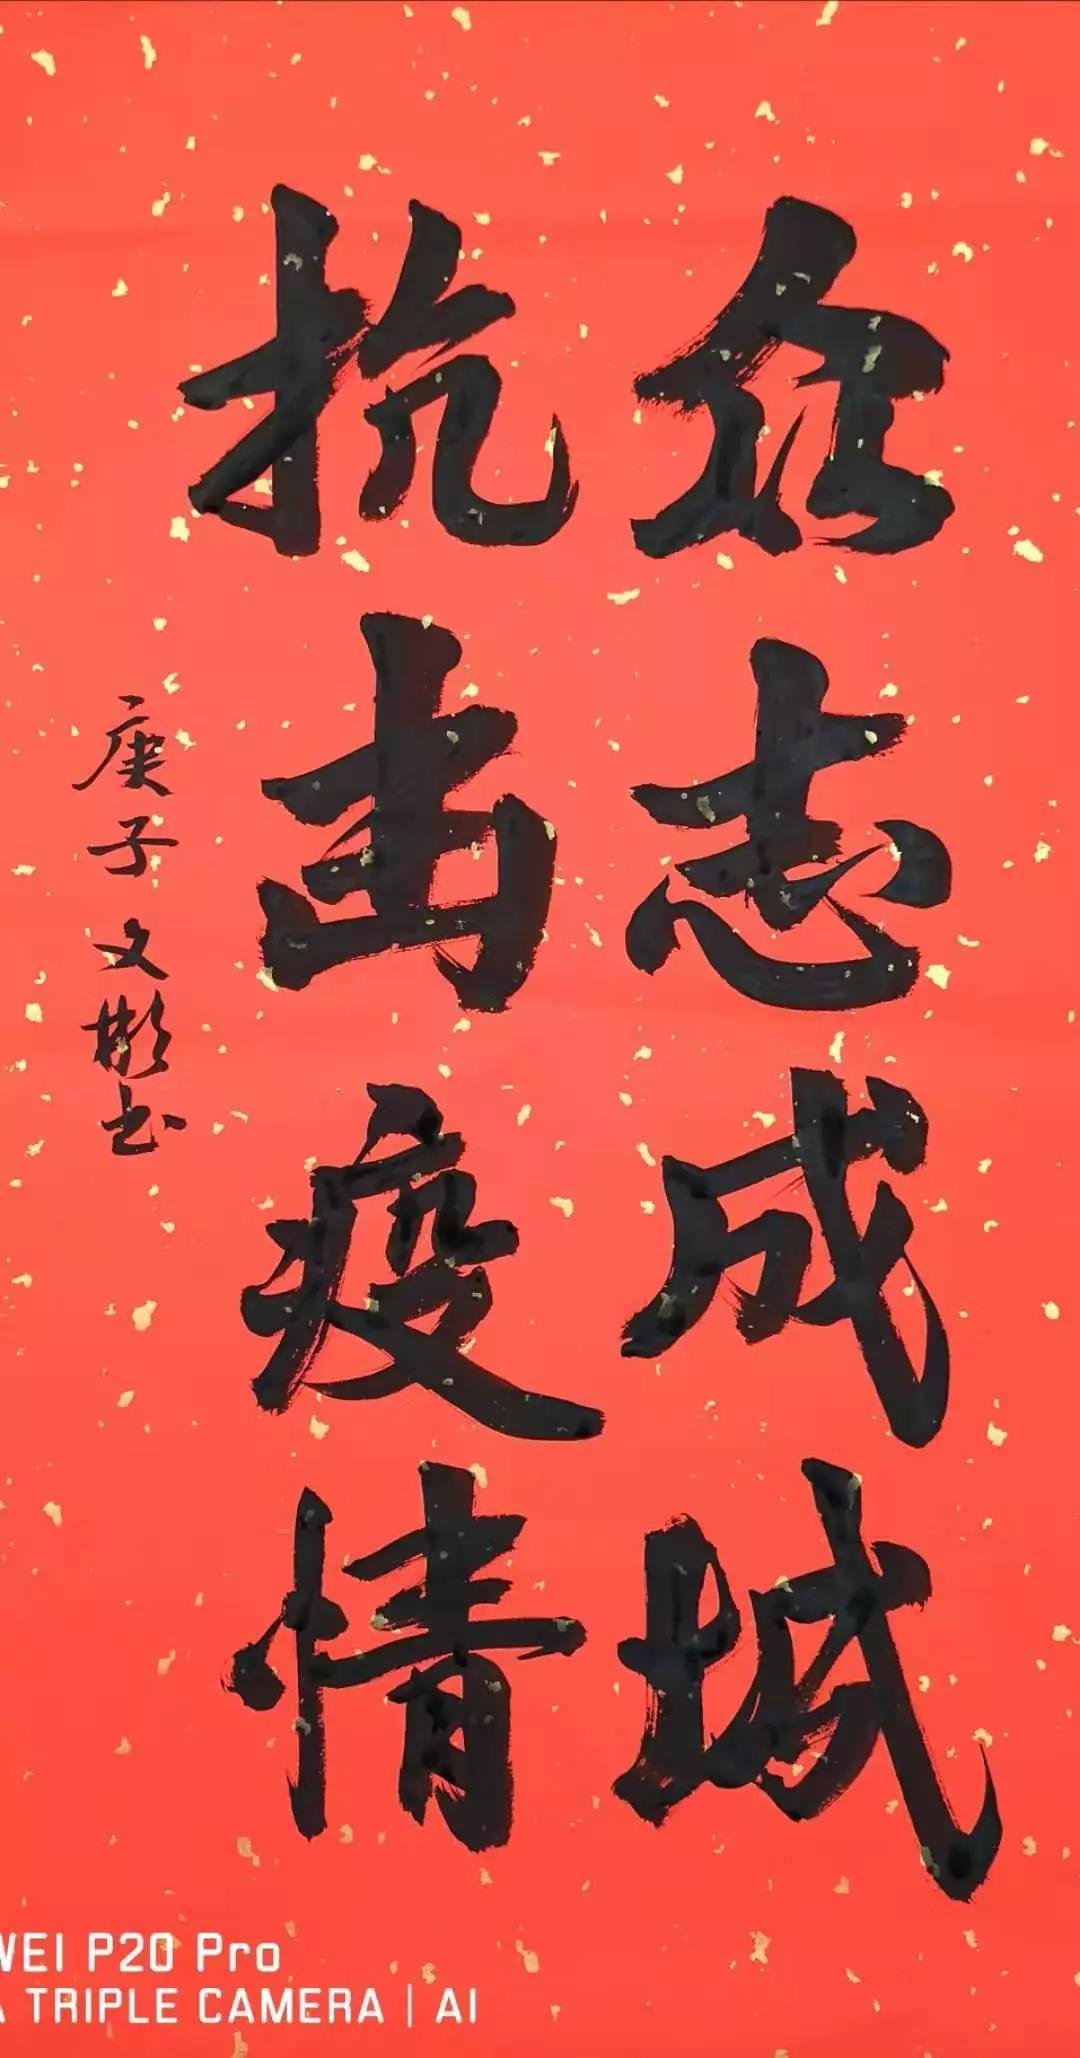 众志成城
抗击疫情
庚子文彬书
WEI P20 Pro
A TRIPLE CAMERA | AI